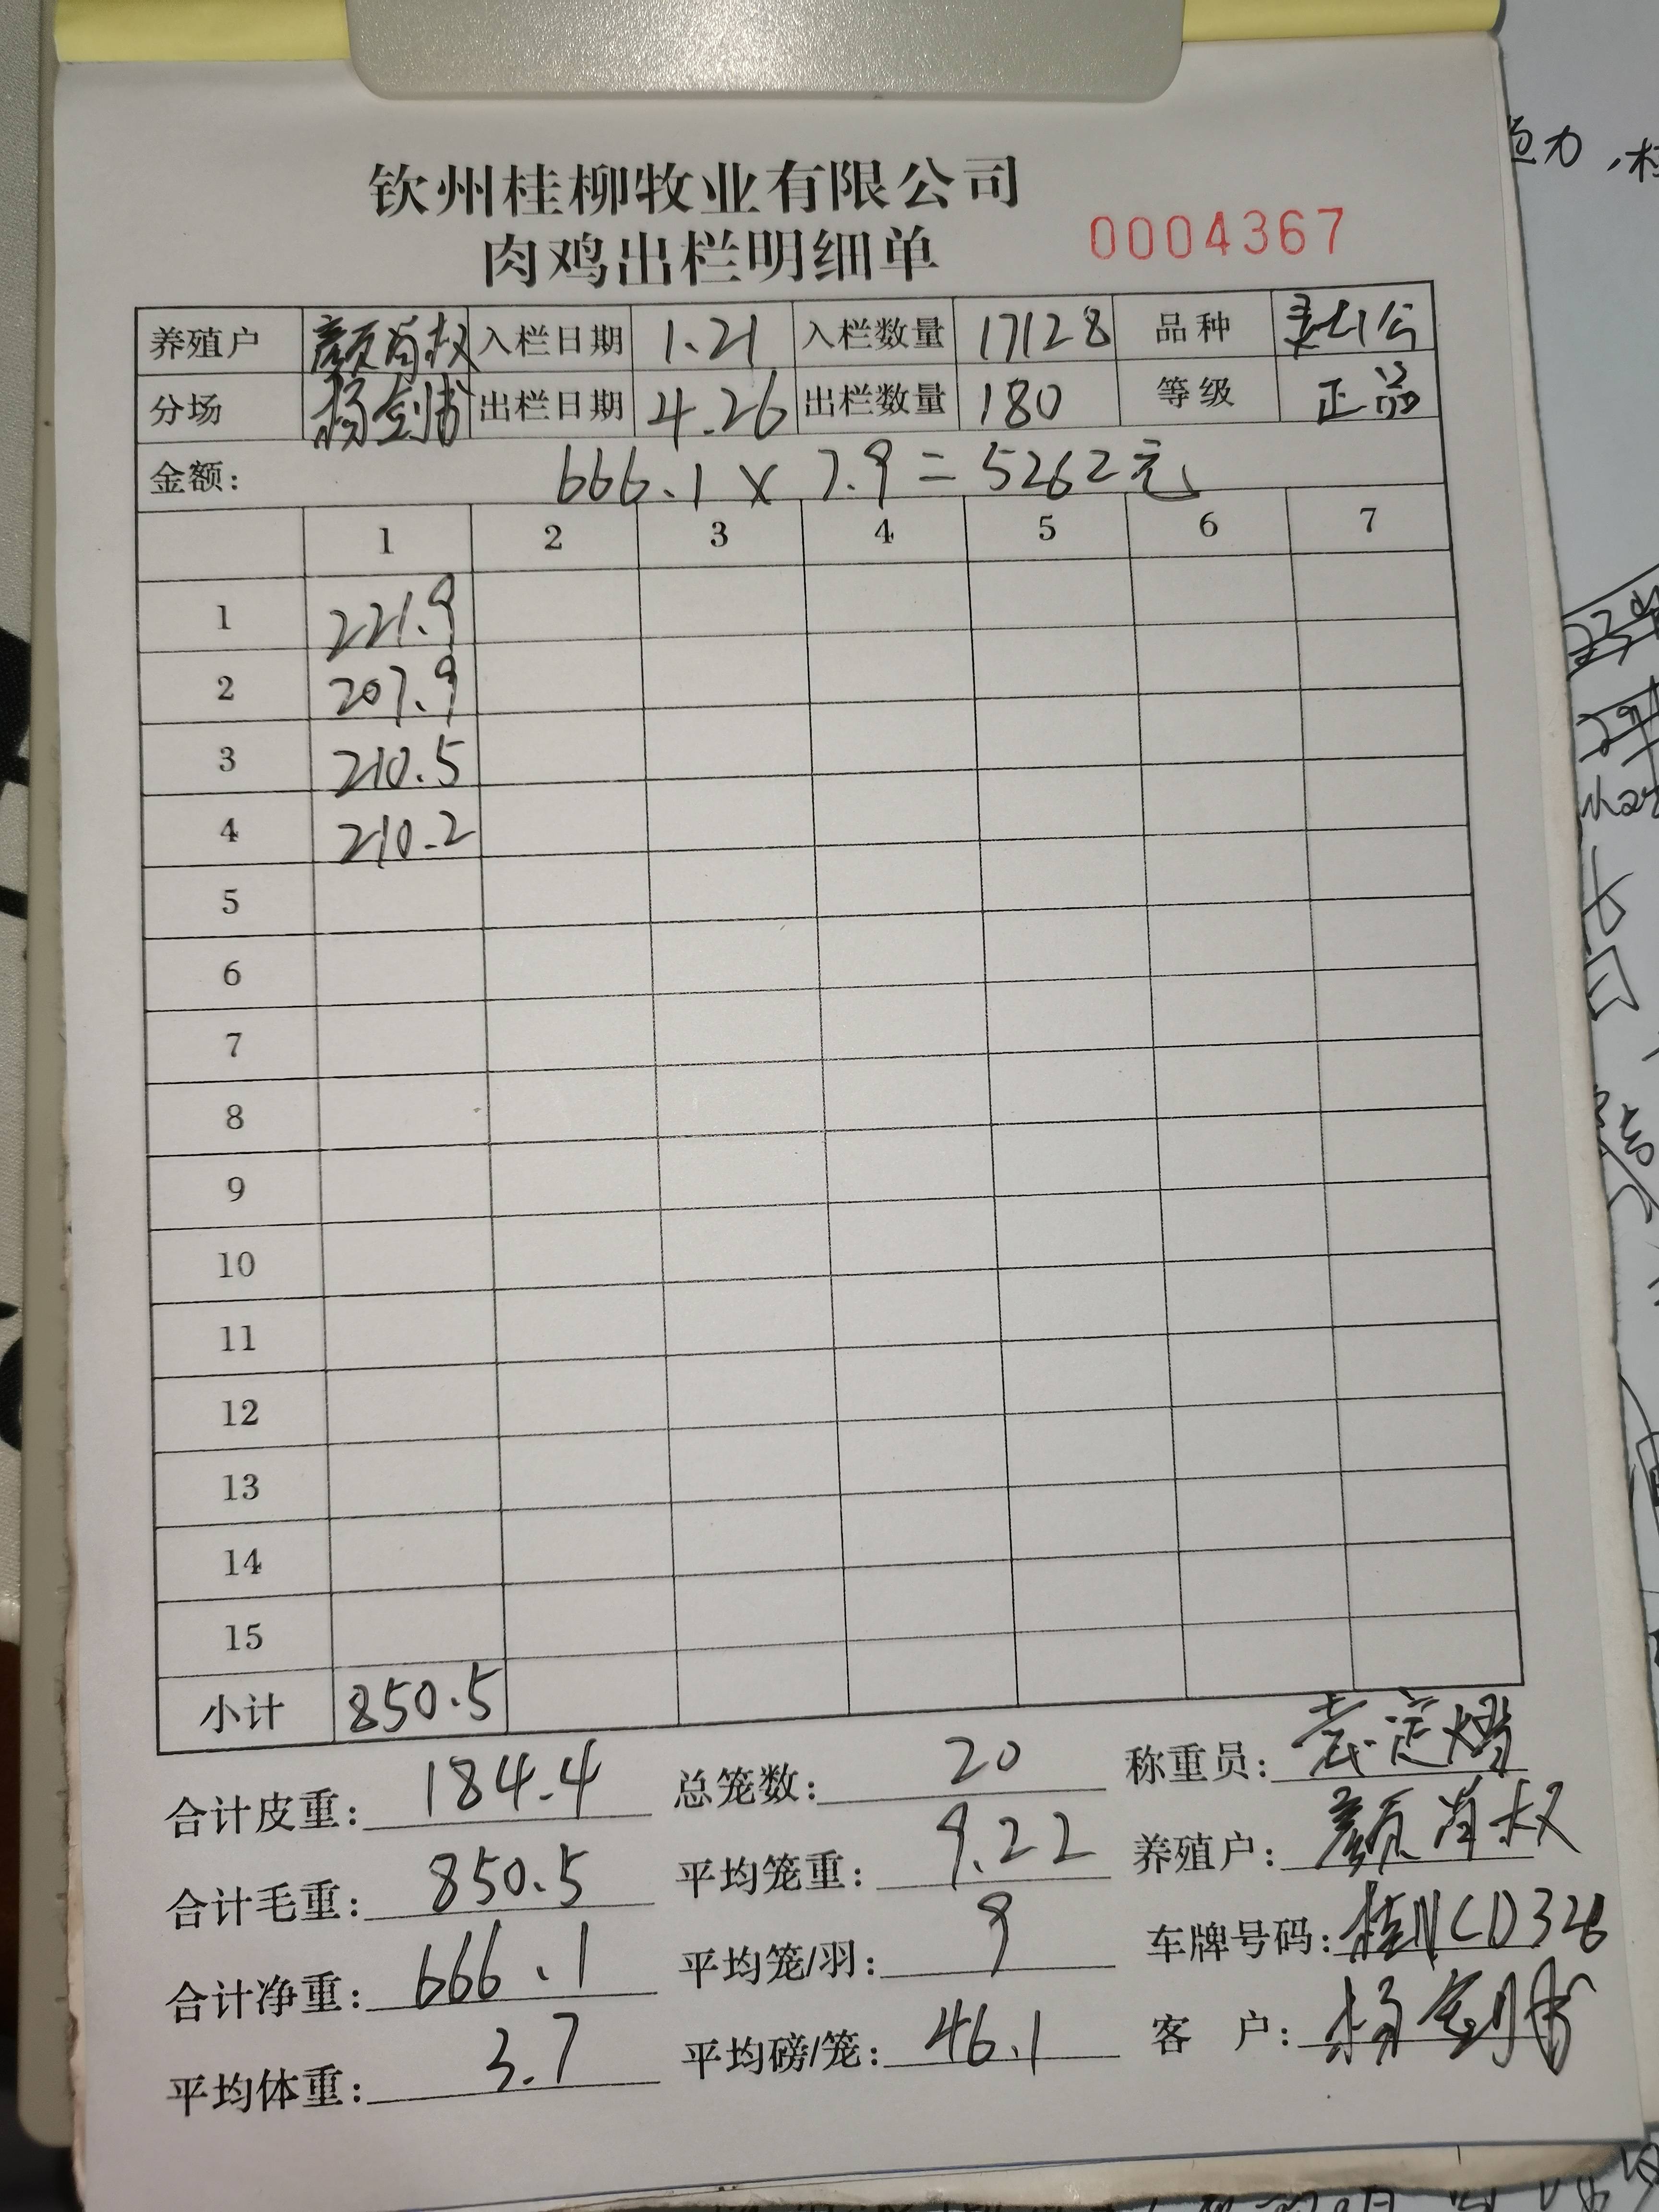 钦州桂柳牧业有限公司
肉鸡出栏明细单 0004367
养殖户 颜肖权 入栏日期 1.21 入栏数量 17128 品种
分场 杨剑 出栏日期 4.26 出栏数量 180 等级 正品
金额: 666.1 x 7.9 = 5262元
1 2 3 4 5 6 7
1 221.9
2 207.9
3 210.5
4 210.2
5
6
7
8
9
10
11
12
13
14
15
小计 850.5
合计皮重: 184.4 总笼数: 20 称重员:
合计毛重: 850.5 平均笼重: 9.22 养殖户: 颜肖权
合计净重: 666.1 平均笼/羽: 9 车牌号码: 桂NCD328
平均体重: 3.7 平均磅/笼: 46.1 客 户: 杨剑